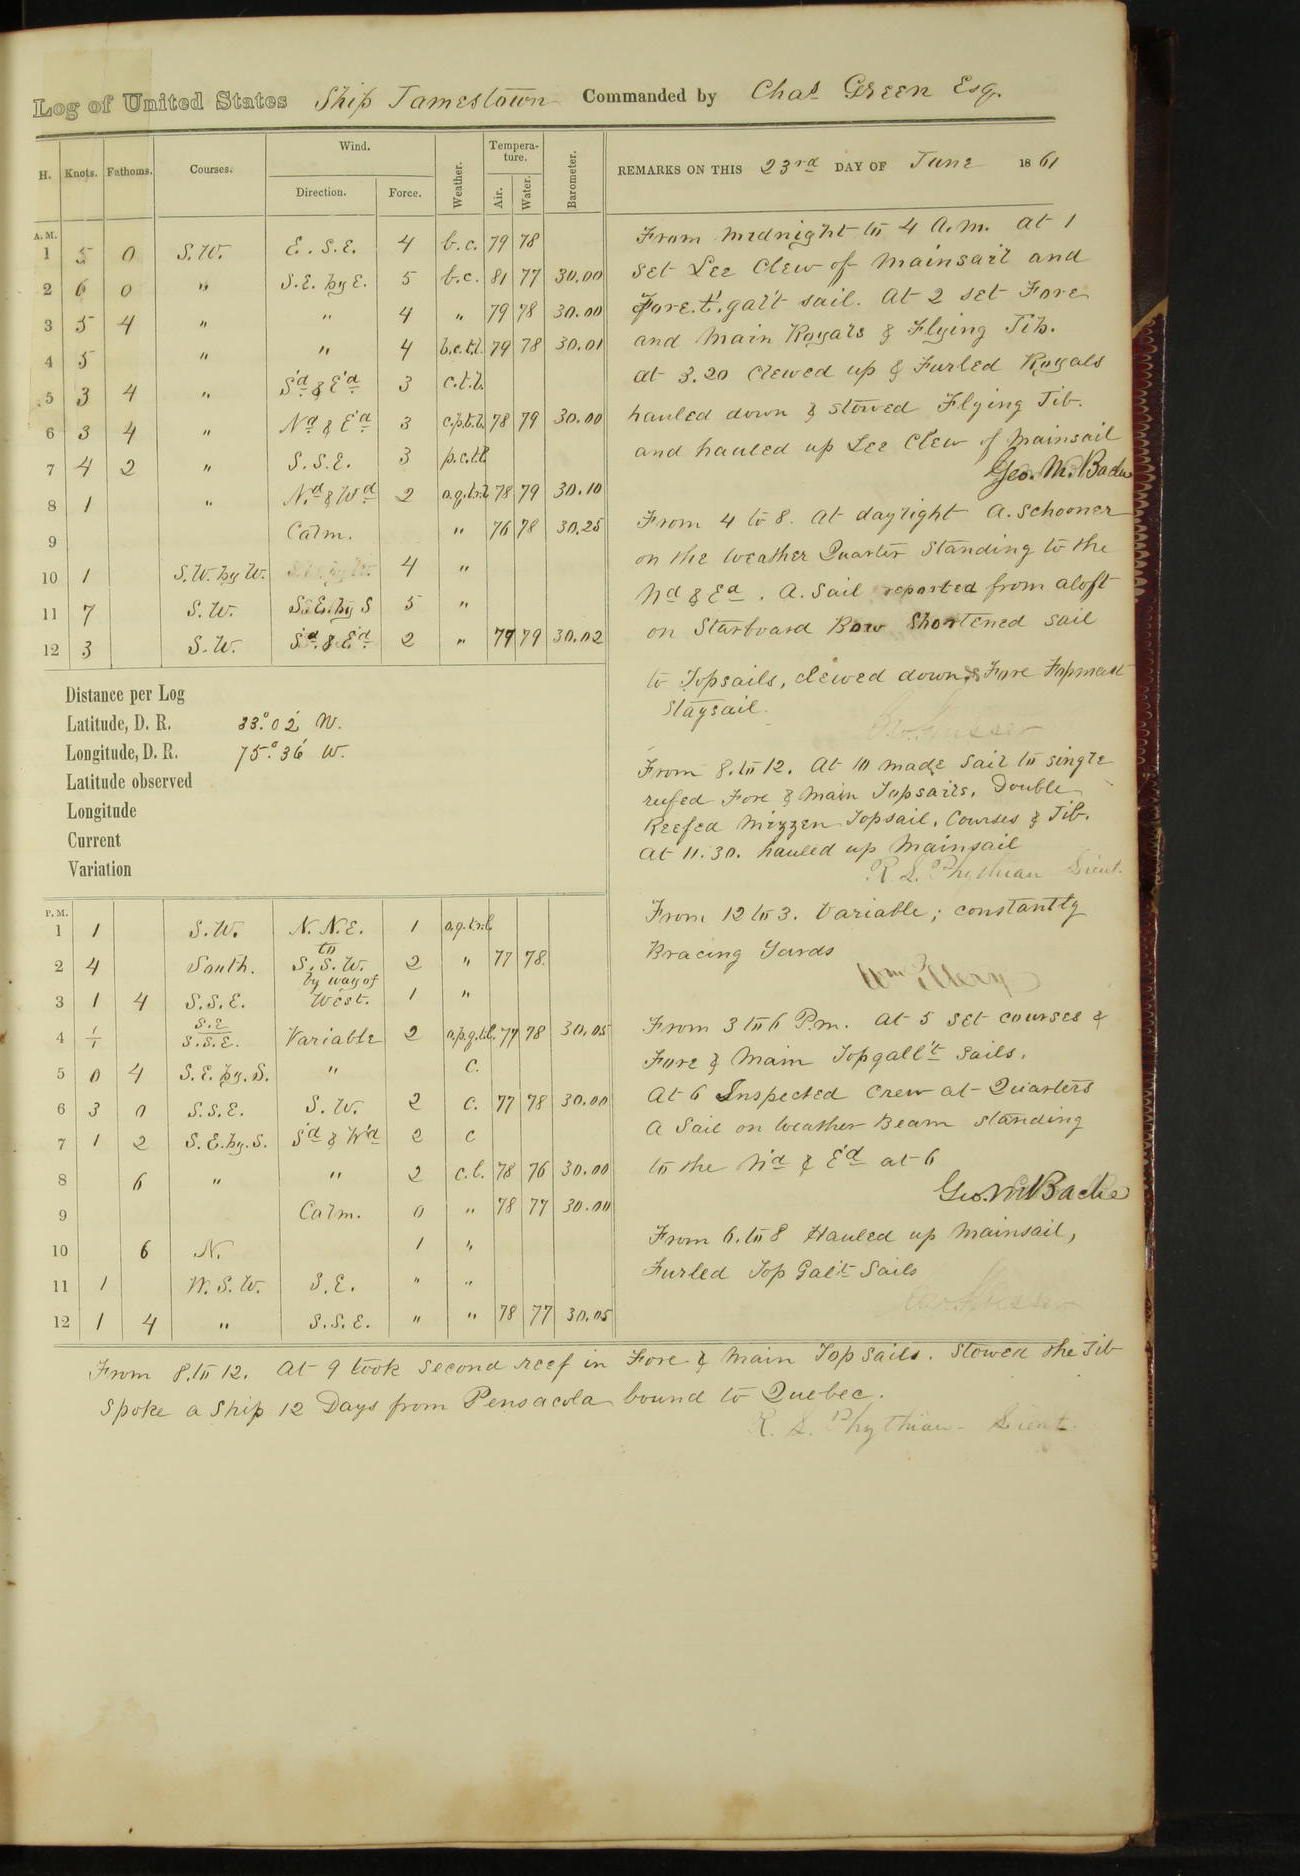 Log of United States Ship Jamestown Commanded by Chas Green Esq.
H. Knots. Fathoms. Courses. Wind. Direction. Force. Weather. Temperature. Air. Water. Barometer.
REMARKS ON THIS 23rd DAY OF June 1861
A.M.
1 5 0 S.W. E.S.E. 4 b.c. 79 78
2 6 0 " S.E. by E. 5 b.c. 81 77 30.00
3 5 4 " " 4 " 79 78 30.00
4 5 " " 4 b.c.t.l. 79 78 30.01
5 3 4 " S'd & E'd 3 c.t.l.
6 3 4 " N'd & E'd 3 c.p.t.l. 78 79 30.00
7 4 2 " S.S.E. 3 p.c.t.l.
8 1 " N'd & W'd 2 o.q.t.r.l. 78 79 30.10
9 Calm. " 76 78 30.25
10 1 S.W. by W. 4 "
11 7 S.W. S.E. by S 5 "
12 3 S.W. S'd & E'd 2 " 77 79 30.02
From midnight to 4 A.M. At 1
set Lee Clew of Mainsail and
Fore.t'.gal't sail. At 2 set Fore
and Main Royals & Flying Jib.
At 3.20 clewed up & Furled Royals
hauled down & stowed Flying Jib.
and hauled up Lee Clew of Mainsail
Geo. M. Bache
From 4 to 8. At daylight A. Schooner
on the weather Quarter Standing to the
Nd & Ed. A. Sail reported from aloft
on Starboard Bow Shortened sail
to Topsails, clewed down & Fore Topmast
Staysail.
Distance per Log
Latitude, D. R. 33° 02' N.
Longitude, D. R. 75° 36' W.
Latitude observed
Longitude
Current
Variation
From 8. to 12. At 10 made sail to single
reefed Fore & Main Topsails, Double
Reefed Mizzen Topsail, Courses & Jib.
At 11.30. hauled up Mainsail
R. L. Phythian Lieut.
P.M.
1 1 S.W. N.N.E. 1 o.q.t.r.l.
to
2 4 South. S.S.W. 2 " 77 78
by way of
3 1 4 S.S.E. West. 1 "
4 1/1 S.E. S.S.E. Variable 2 o.p.q.t.l. 77 78 30.05
5 0 4 S.E. by S. " c.
6 3 0 S.S.E. S.W. 2 c. 77 78 30.00
7 1 2 S.E. by S. S'd & W'd 2 c
8 6 " " 2 c.l. 78 76 30.00
9 Calm. 0 " 78 77 30.00
10 6 N. 1 "
11 1 W.S.W. S.E. " "
12 1 4 " S.S.E. " " 78 77 30.05
From 12 to 3. Variable; constantly
Bracing Yards
From 3 to 6 P.m. At 5 set courses &
Fore & Main Topgall't Sails.
At 6 Inspected Crew at Quarters
A Sail on Weather Beam standing
to the N'd & E'd at 6
Geo. M Bache
From 6. to 8 Hauled up Mainsail,
Furled Top Gal't Sails
From 8. to 12. At 9 took second reef in Fore & Main Top Sails. Stowed the Jib
Spoke a Ship 12 Days from Pensacola bound to Quebec.
R. L. Phythian - Lieut.